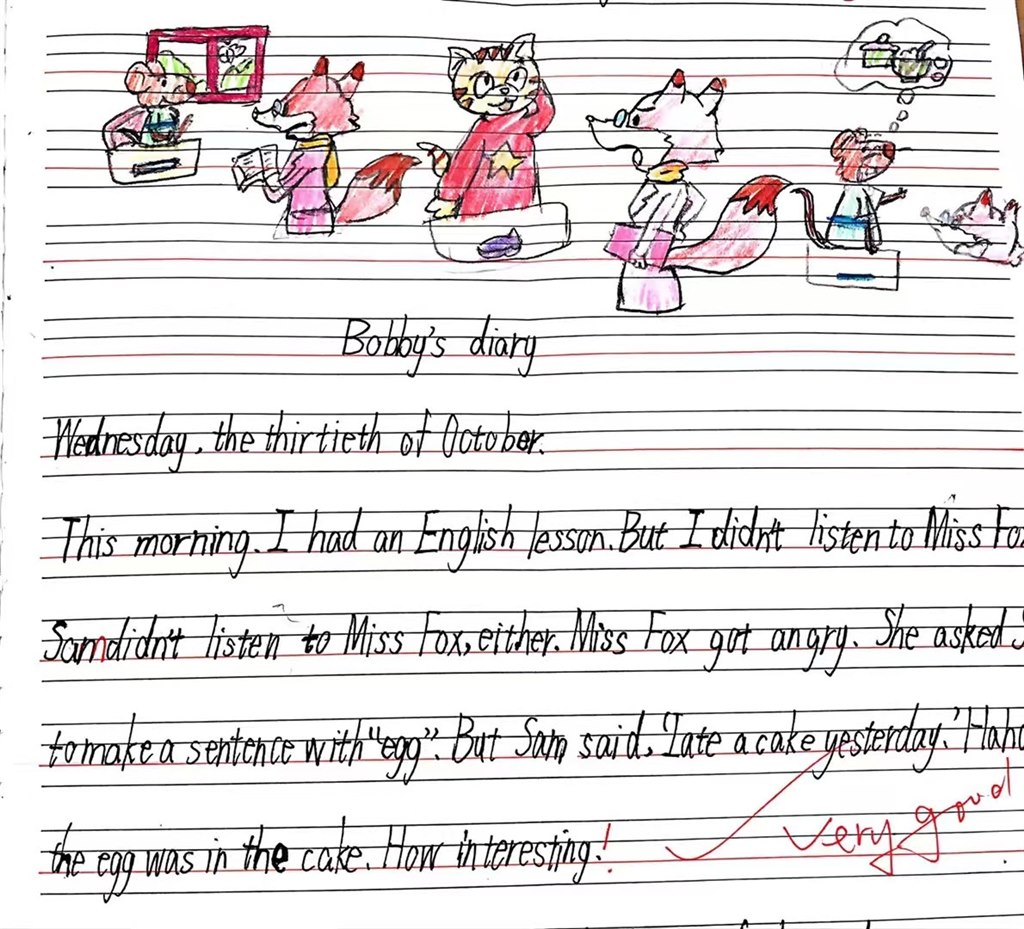 Bobby's diary
Wednesday, the thirtieth of October.
This morning. I had an English lesson. But I didn't listen to Miss
Sam didn't listen to Miss Fox, either. Miss Fox got angry. She asked
to make a sentence with "egg". But Sam said, "I ate a cake yesterday."
the egg was in the cake. How interesting!
very good